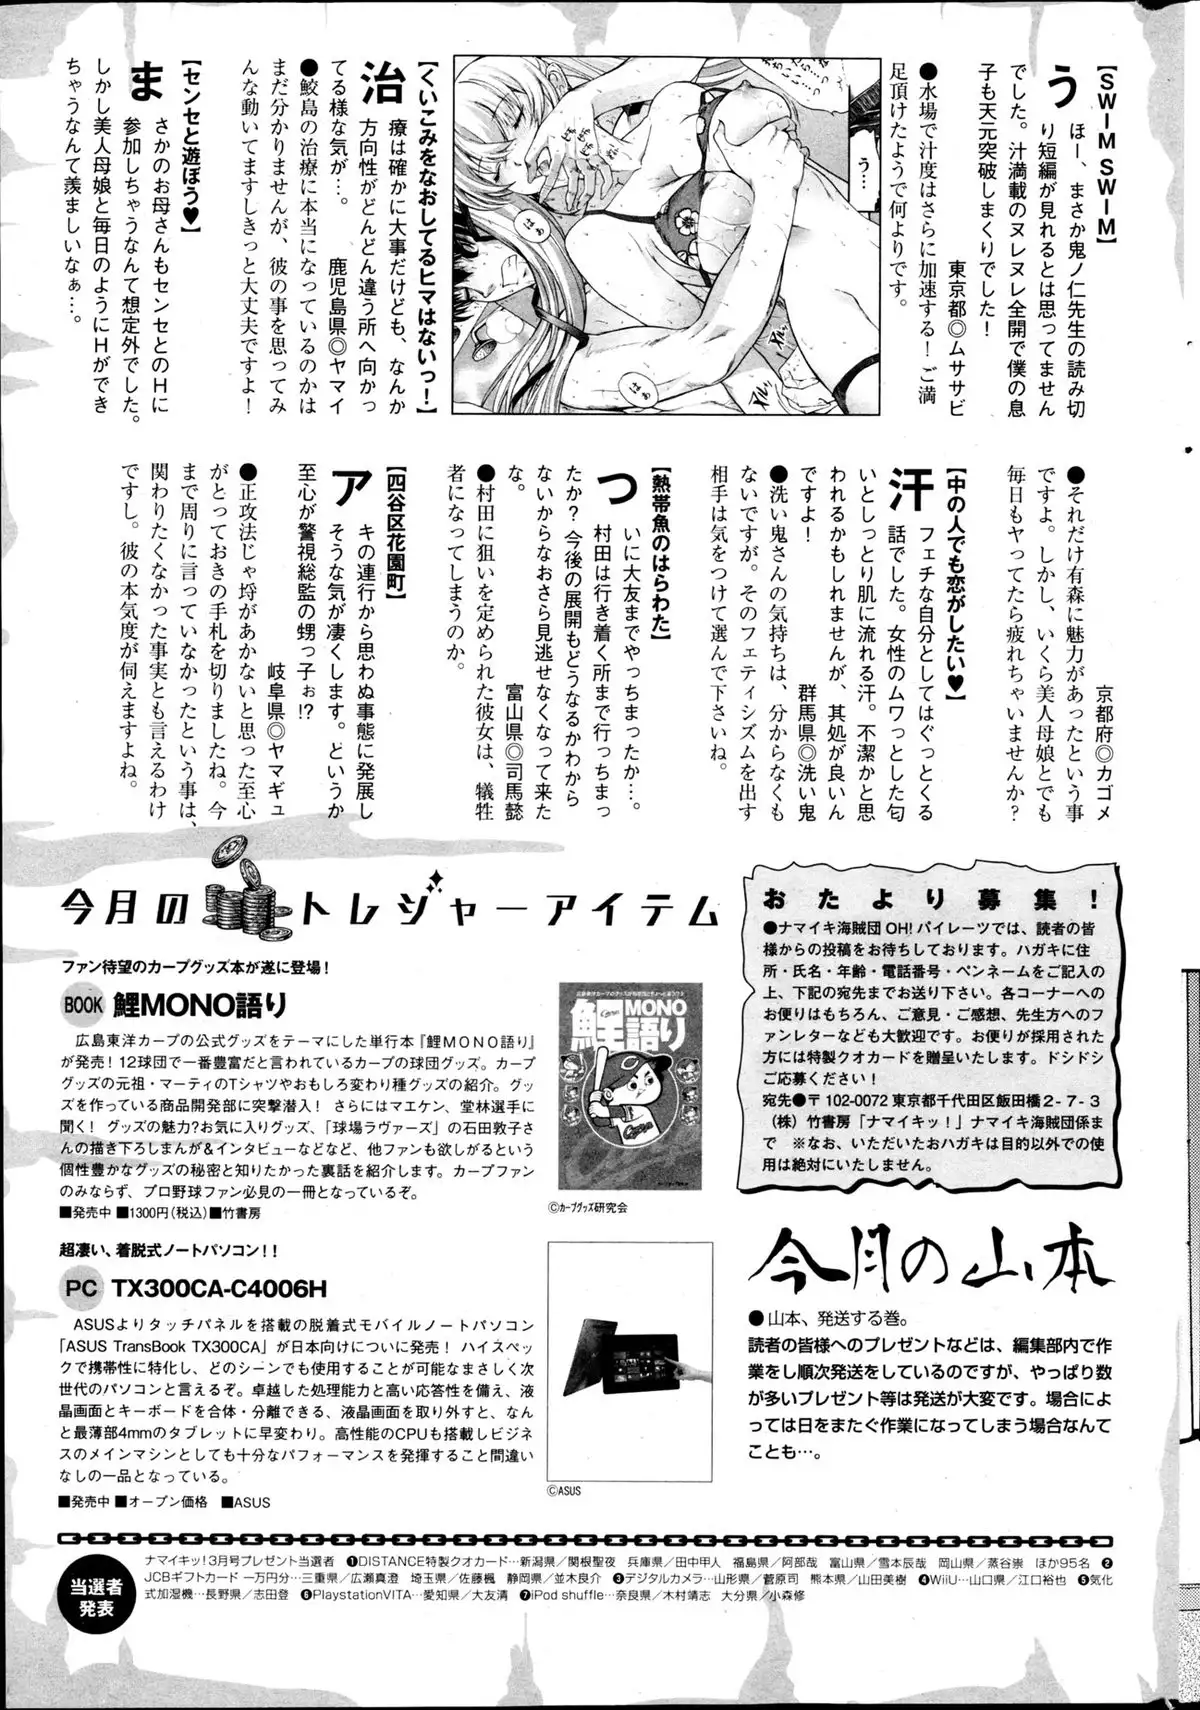 【SWIM SWIM】
うほー、まさか鬼ノ仁先生の読み切
り短編が見れるとは思ってません
でした。汁満載のヌレヌレ全開で僕の息
子も天元突破しまくりでした！
東京都◎ムササビ
●水場で汁度はさらに加速する！ご満
足頂けたようで何よりです。
う…
はぁ
はぁ
【くいこみをなおしてるヒマはないっ！】
治療は確かに大事だけども、なんか
方向性がどんどん違う所へ向かっ
てる様な気が…。
鹿児島県◎ヤマイ
●鮫島の治療に本当になっているのかは
まだ分かりませんが、彼の事を思ってみ
んな動いてますしきっと大丈夫ですよ！
【センセと遊ぼう♥】
まさかのお母さんもセンセとのHに
参加しちゃうなんて想定外でした。
しかし美人母娘と毎日のようにHができ
ちゃうなんて羨ましいなぁ…。
京都府◎カゴメ
●それだけ有森に魅力があったという事
ですよ。しかし、いくら美人母娘とでも
毎日もヤってたら疲れちゃいませんか？
【中の人でも恋がしたい♥】
汗フェチな自分としてはぐっとくる
話でした。女性のムワっとした匂
いとしっとり肌に流れる汗。不潔かと思
われるかもしれませんが、其処が良いん
ですよ！
群馬県◎洗い鬼
●洗い鬼さんの気持ちは、分からなくも
ないですが。そのフェティシズムを出す
相手は気をつけて選んで下さいね。
【熱帯魚のはらわた】
ついに大友までやっちまったか…。
村田は行き着く所まで行っちまっ
たか？今後の展開もどうなるかわから
ないからなおさら見逃せなくなって来た
な。
富山県◎司馬懿
●村田に狙いを定められた彼女は、犠牲
者になってしまうのか。
【四谷区花園町】
アキの連行から思わぬ事態に発展し
そうな気が凄くします。というか
至心が警視総監の甥っ子ぉ!?
岐阜県◎ヤマギュ
●正攻法じゃ埒があかないと思った至心
がとっておきの手札を切りましたね。今
まで周りに言っていなかったという事は、
関わりたくなかった事実とも言えるわけ
ですし。彼の本気度が伺えますよね。
今月のトレジャーアイテム
ファン待望のカープグッズ本が遂に登場！
BOOK 鯉MONO語り
広島東洋カープの公式グッズをテーマにした単行本『鯉MONO語り』
が発売！12球団で一番豊富だと言われているカープの球団グッズ。カープ
グッズの元祖・マーティのTシャツやおもしろ変わり種グッズの紹介。グッ
ズを作っている商品開発部に突撃潜入！ さらにはマエケン、堂林選手に
聞く！ グッズの魅力？お気に入りグッズ、「球場ラヴァーズ」の石田敦子さ
んの描き下ろしまんが＆インタビューなどなど、他ファンも欲しがるという
個性豊かなグッズの秘密と知りたかった裏話を紹介します。カープファン
のみならず、プロ野球ファン必見の一冊となっているぞ。
■発売中 ■1300円(税込) ■竹書房
鯉MONO語り
©カープグッズ研究会
超凄い、着脱式ノートパソコン！！
PC TX300CA-C4006H
ASUSよりタッチパネルを搭載の脱着式モバイルノートパソコン
「ASUS TransBook TX300CA」が日本向けについに発売！ ハイスペッ
クで携帯性に特化し、どのシーンでも使用することが可能なまさしく次
世代のパソコンと言えるぞ。卓越した処理能力と高い応答性を備え、液
晶画面とキーボードを合体・分離できる、液晶画面を取り外すと、なん
と最薄部4mmのタブレットに早変わり。高性能のCPUも搭載しビジネ
スのメインマシンとしても十分なパフォーマンスを発揮すること間違い
なしの一品となっている。
■発売中 ■オープン価格 ■ASUS
©ASUS
おたより募集！
●ナマイキ海賊団 OH！パイレーツでは、読者の皆
様からの投稿をお待ちしております。ハガキに住
所・氏名・年齢・電話番号・ペンネームをご記入の
上、下記の宛先までお送り下さい。各コーナーへの
お便りはもちろん、ご意見・ご感想、先生方へのフ
ァンレターなども大歓迎です。お便りが採用された
方には特製クオカードを贈呈いたします。ドシドシ
ご応募ください！
宛先●〒102-0072 東京都千代田区飯田橋2-7-3
（株）竹書房「ナマイキッ！」ナマイキ海賊団係ま
で ※なお、いただいたおハガキは目的以外での使
用は絶対にいたしません。
今月の山本
●山本、発送する巻。
読者の皆様へのプレゼントなどは、編集部内で作
業をし順次発送をしているのですが、やっぱり数
が多いプレゼント等は発送が大変です。場合によ
っては日をまたぐ作業になってしまう場合なんて
ことも…。
当選者
発表
ナマイキッ！3月号プレゼント当選者 ❶DISTANCE特製クオカード…新潟県／関根聖夜 兵庫県／田中甲人 福島県／阿部哉 富山県／雪本辰哉 岡山県／蒸谷崇 ほか95名 ❷
JCBギフトカード 一万円分…三重県／広瀬真澄 埼玉県／佐藤楓 静岡県／並木良介 ❸デジタルカメラ…山形県／菅原司 熊本県／山田美樹 ❹WiiU…山口県／江口裕也 ❺気化
式加湿機…長野県／志田登 ❻PlaystationVITA…愛知県／大友清 ❼iPod shuffle…奈良県／木村靖志 大分県／小森修